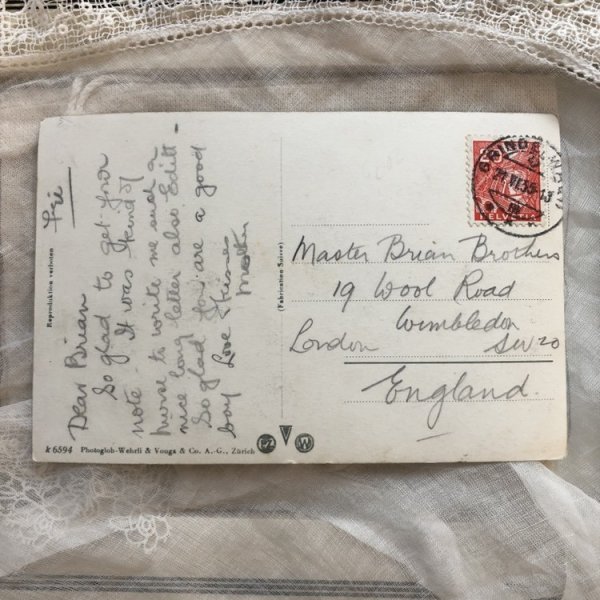 Fri
Dear Brian
So glad to get your
note. It was kind of
nurse to write me such a
nice long letter also Edith -
So glad you are a good
boy Love & kisses
Reproduktion verboten
k 6594 Photogloh-Wehrli & Vouga & Co. A.-G., Zürich
PZ W
(Fabrication Suisse)
HELVETIA
Master Brian Brothers
19 Wool Road
Wimbledon
London SW 20
England.